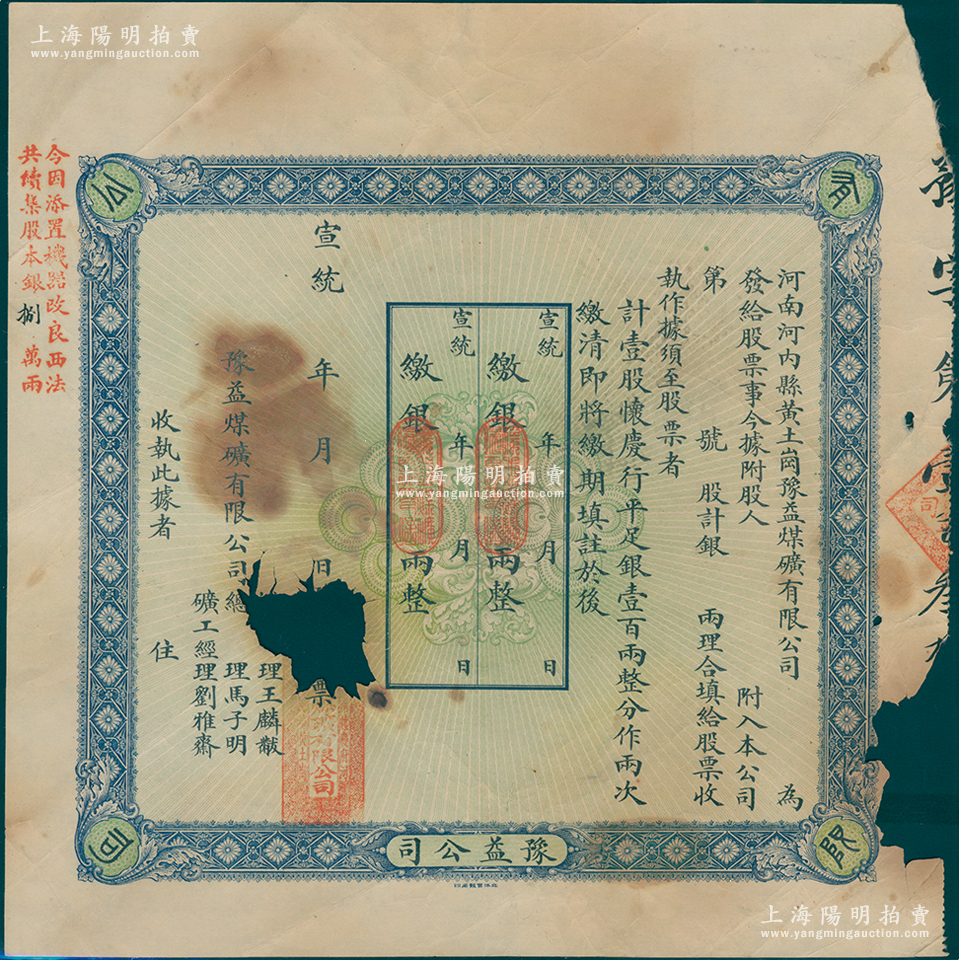 上海陽明拍賣
www.yangmingauction.com
有限公司
河南河內縣黃土崗豫益煤礦有限公司 為
發給股票事今據附股人 附入本公司
第 號 股計銀 兩理合填給股票收
執作據須至股票者
計壹股懷慶行平足銀壹百兩整分作兩次
繳清即將繳期填註於後
宣統 年 月 日
繳銀 兩整
宣統 年 月 日
繳銀 兩整
宣統 年 月 日 票
理王麟黻
豫益煤礦有限公司總 理馬子明
礦工經理劉雅齋
收執此據者 住
今因添置機器改良西法
共續集股本銀捌萬兩
豫益公司
上海陽明拍賣
www.yangmingauction.com
上海陽明拍賣
www.yangmingauction.com